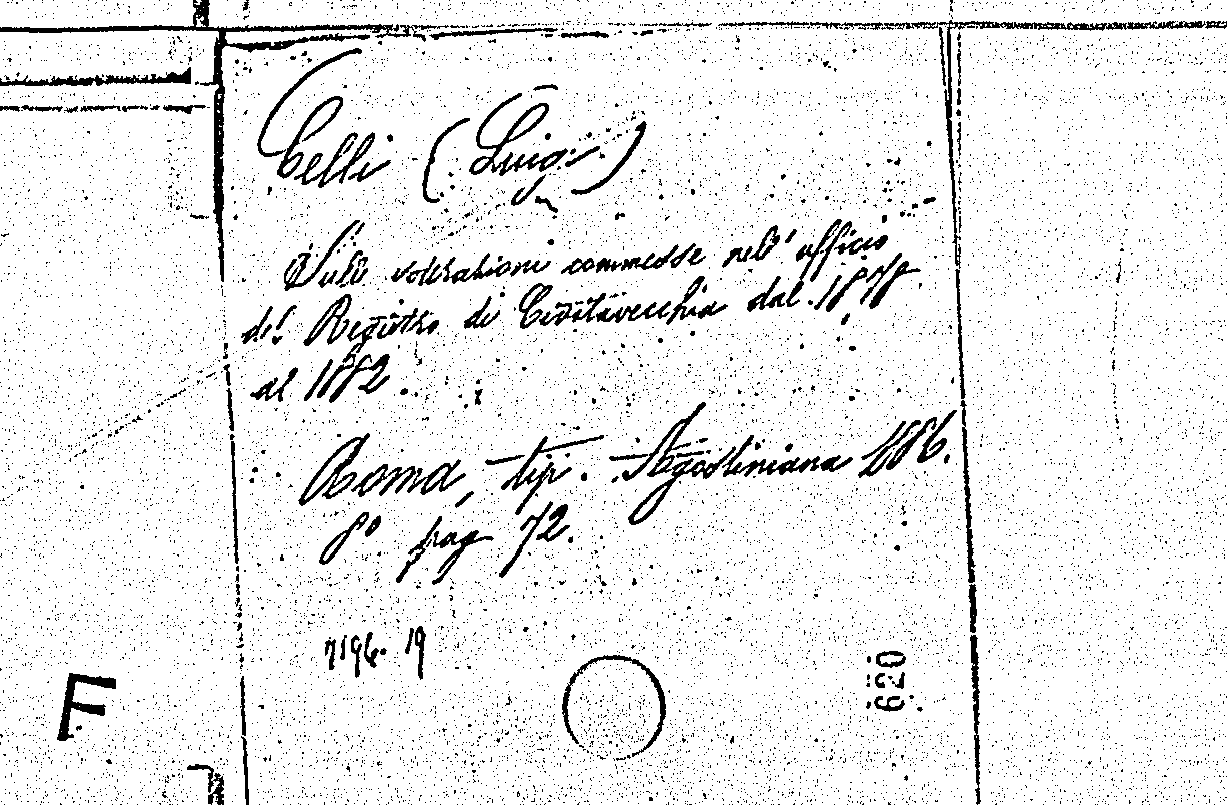 Celli (Luigi)
Sulle volturazioni commesse nell' ufficio
del Registro di Civitavecchia dal 1878
al 1882.
Roma, tip. Agostiniana 1886.
8º pag 72.
7196. 19
620
F